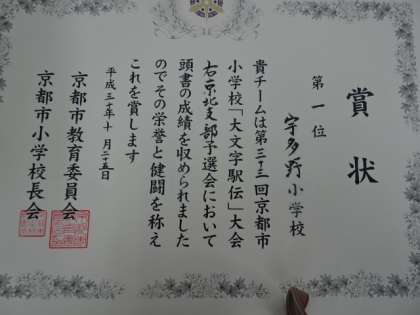 賞状
第一位
宇多野小学校
貴チームは第三十三回京都市
小学校「大文字駅伝」大会
右京北支部予選会において
頭書の成績を収められました
のでその栄誉と健闘を称え
これを賞します
平成三十年十月二十五日
京都市教育委員会
京都市小学校長会